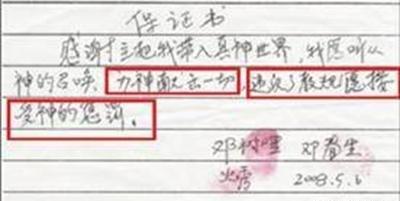 保证书
感谢主把我带入真神世界，我愿听从
神的召唤、为神献出一切，违犯了教规愿接
受神的惩罚。
邓 邓春生
火秀 2008.5.6